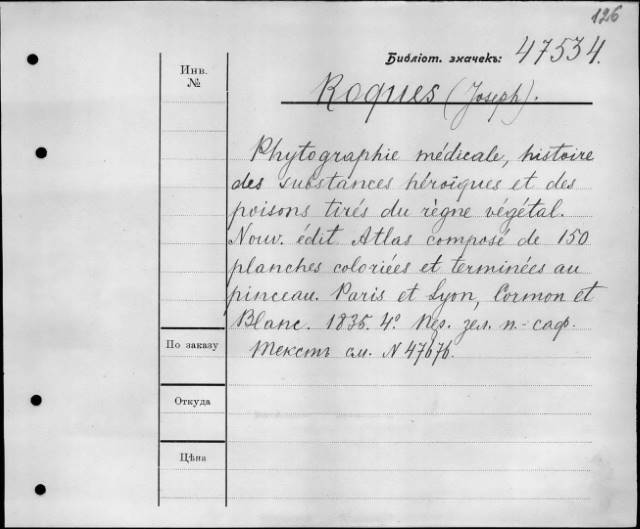 126
Библіот. значекъ: 47534.
Инв.
№
Roques (Joseph).
Phytographie médicale, histoire
des substances héroïques et des
poisons tirés du règne végétal.
Nouv. édit Atlas composé de 150
planches coloriées et terminées au
pinceau. Paris et Lyon, Cormon et
Blanc. 1835. 4º Пер. зел. п.-саф.
Текстъ см. N 47676.
По заказу
Откуда
Цѣна